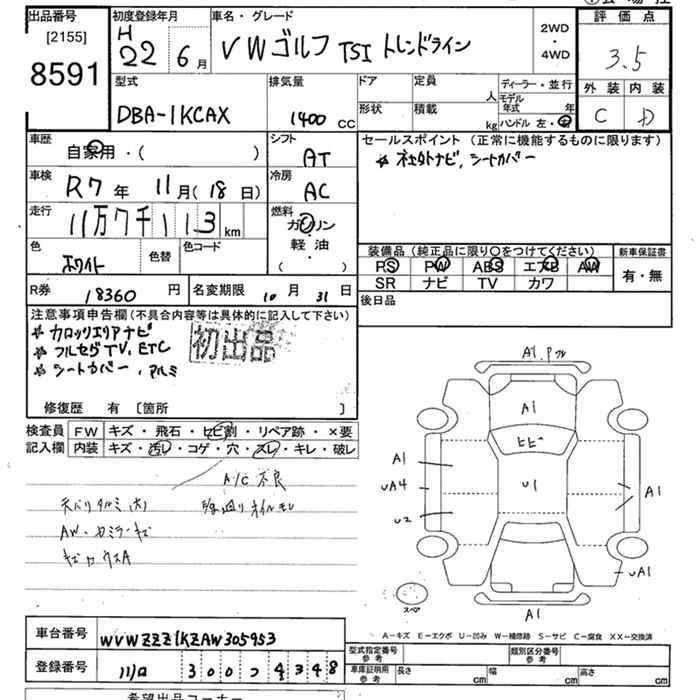 出品番号 [2155] 8591
初度登録年月 H 22年 6月
車名・グレード VWゴルフ TSI トレンドライン
2WD・4WD
評価点 3.5
外装 内装
C D
型式 DBA-1KCAX
排気量 1400 CC
ドア 定員 人
形状 積載 kg
ディーラー・並行
モデル年式 年
ハンドル 左・右
車歴 自家用・( )
シフト AT
車検 R7年 11月(18日)
冷房 AC
走行 11万7千113km
燃料 ガソリン
軽油
( )
色 ホワイト 色替 色コード
R券 18360円 名変期限 10月 31日
セールスポイント (正常に機能するものに限ります)
*社外ナビ、シートカバー
装備品 (純正品に限り○をつけてください) 新車保証書
PS PW ABS エアB AW 有・無
SR ナビ TV カワ
後日品
注意事項申告欄(不具合内容等は具体的に記入して下さい)
*カロッツェリアナビ
*フルセグTV、ETC
*シートカバー、アルミ
初出品
修復歴 有 〔箇所 〕
検査員記入欄
FW キズ・飛石・ヒビ割・リペア跡・×要
内装 キズ・汚レ・コゲ・穴・スレ・キレ・破レ
A/C 不良
天バリタルミ(大)
AW・
A1
A1
ヒビ
U1
A1
UA4
U2
A1
UA1
スペア
A1
A-キズ E-エクボ U-凹み W-補修跡 S-サビ C-腐食 XX-交換済
車台番号 WVWZZZ1KZAW305953
登録番号 川口 300 つ 4348
型式指定番号 参考 類別区分番号 参考
車庫証明用 参考 長さ cm 幅 cm 高さ cm
希望出品コーナー